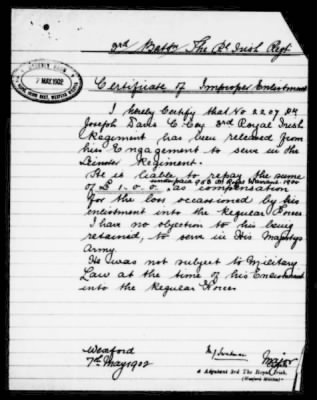 3rd Battn The Rl Irish Regt
ORDERLY ROOM
7 MAY 1902
Certificate of Improper Enlistment
I hereby Certify that No. 2207 Pte
Joseph Dans C Coy 3rd Royal Irish
Regiment has been released from
his Engagement to serve in the
Leinster Regiment.
He is liable to repay the sume
under para 968 of Royal Warrant 1900
of £ 1. 0. 0. as compensation
for the loss occassioned by his
enlistment into the Regular Forces
I have no objection to his being
retained, to serve in His Majestys
Army.
He was not subject to Military
Law at the time of his Enlistment
into the Regular Forces
Wexford
7th May 1902
Major
Adjutant 3rd The Royal Irish.
(Wexford Militia)